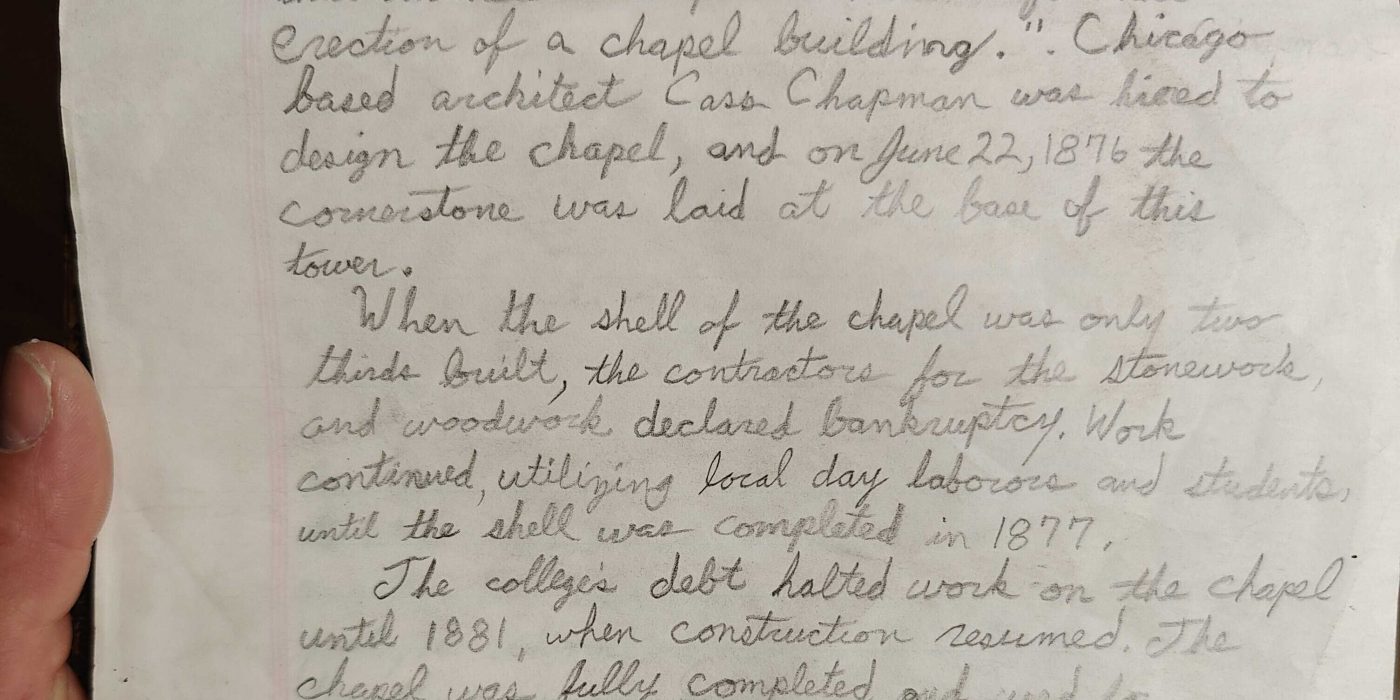 erection of a chapel building.". Chicago
based architect Cass Chapman was hired to
design the chapel, and on June 22, 1876 the
cornerstone was laid at the base of this
tower.
When the shell of the chapel was only two
thirds built, the contractors for the stonework,
and woodwork declared bankruptcy. Work
continued, utilizing local day laborors and students,
until the shell was completed in 1877.
The college's debt halted work on the chapel
until 1881, when construction resumed. The
chapel was fully completed and used to